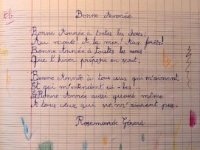 Bonne Année
Bonne Année à toutes les choses,
Au monde! À la mer! Aux forêts!
Bonne Année à toutes les roses
Que l'hiver prépare en secret.
Bonne Année à tous ceux qui m'aiment
Et qui m'entendent ici-bas.
Et Bonne Année aussi quand même
À tous ceux qui ne m'aiment pas.
Rosemonde Gérard